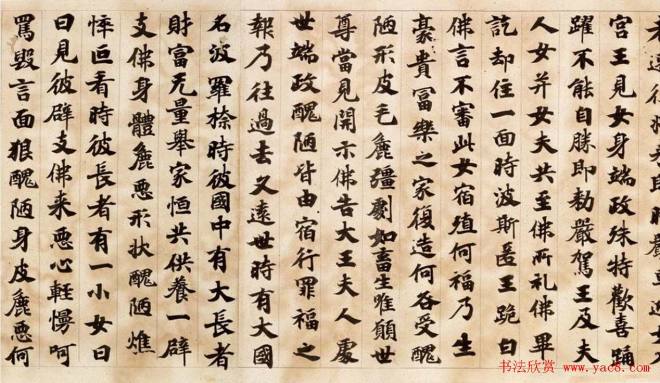 宮王見女身端政殊特歡喜踊
躍不能自勝即勅嚴駕王及夫
人女并女夫共至佛所礼佛畢
訖却住一面時波斯匿王跪白
佛言不審此女宿殖何福乃生
豪貴冨樂之家復造何咎受醜
陋形皮毛麁彊劇如畜生唯願世
尊當見開示佛告大王夫人處
世端政醜陋皆由宿行罪福之
報乃往過去久遠世時有大國
名波羅㮈時彼國中有大長者
財富无量舉家恒共供養一辟
支佛身體麁惡形状醜陋燋
悴叵看時彼長者有一小女日
日見彼辟支佛来惡心輕慢呵
罵毀言面狠醜陋身皮麁惡何
书法欣赏 www.yac8.com